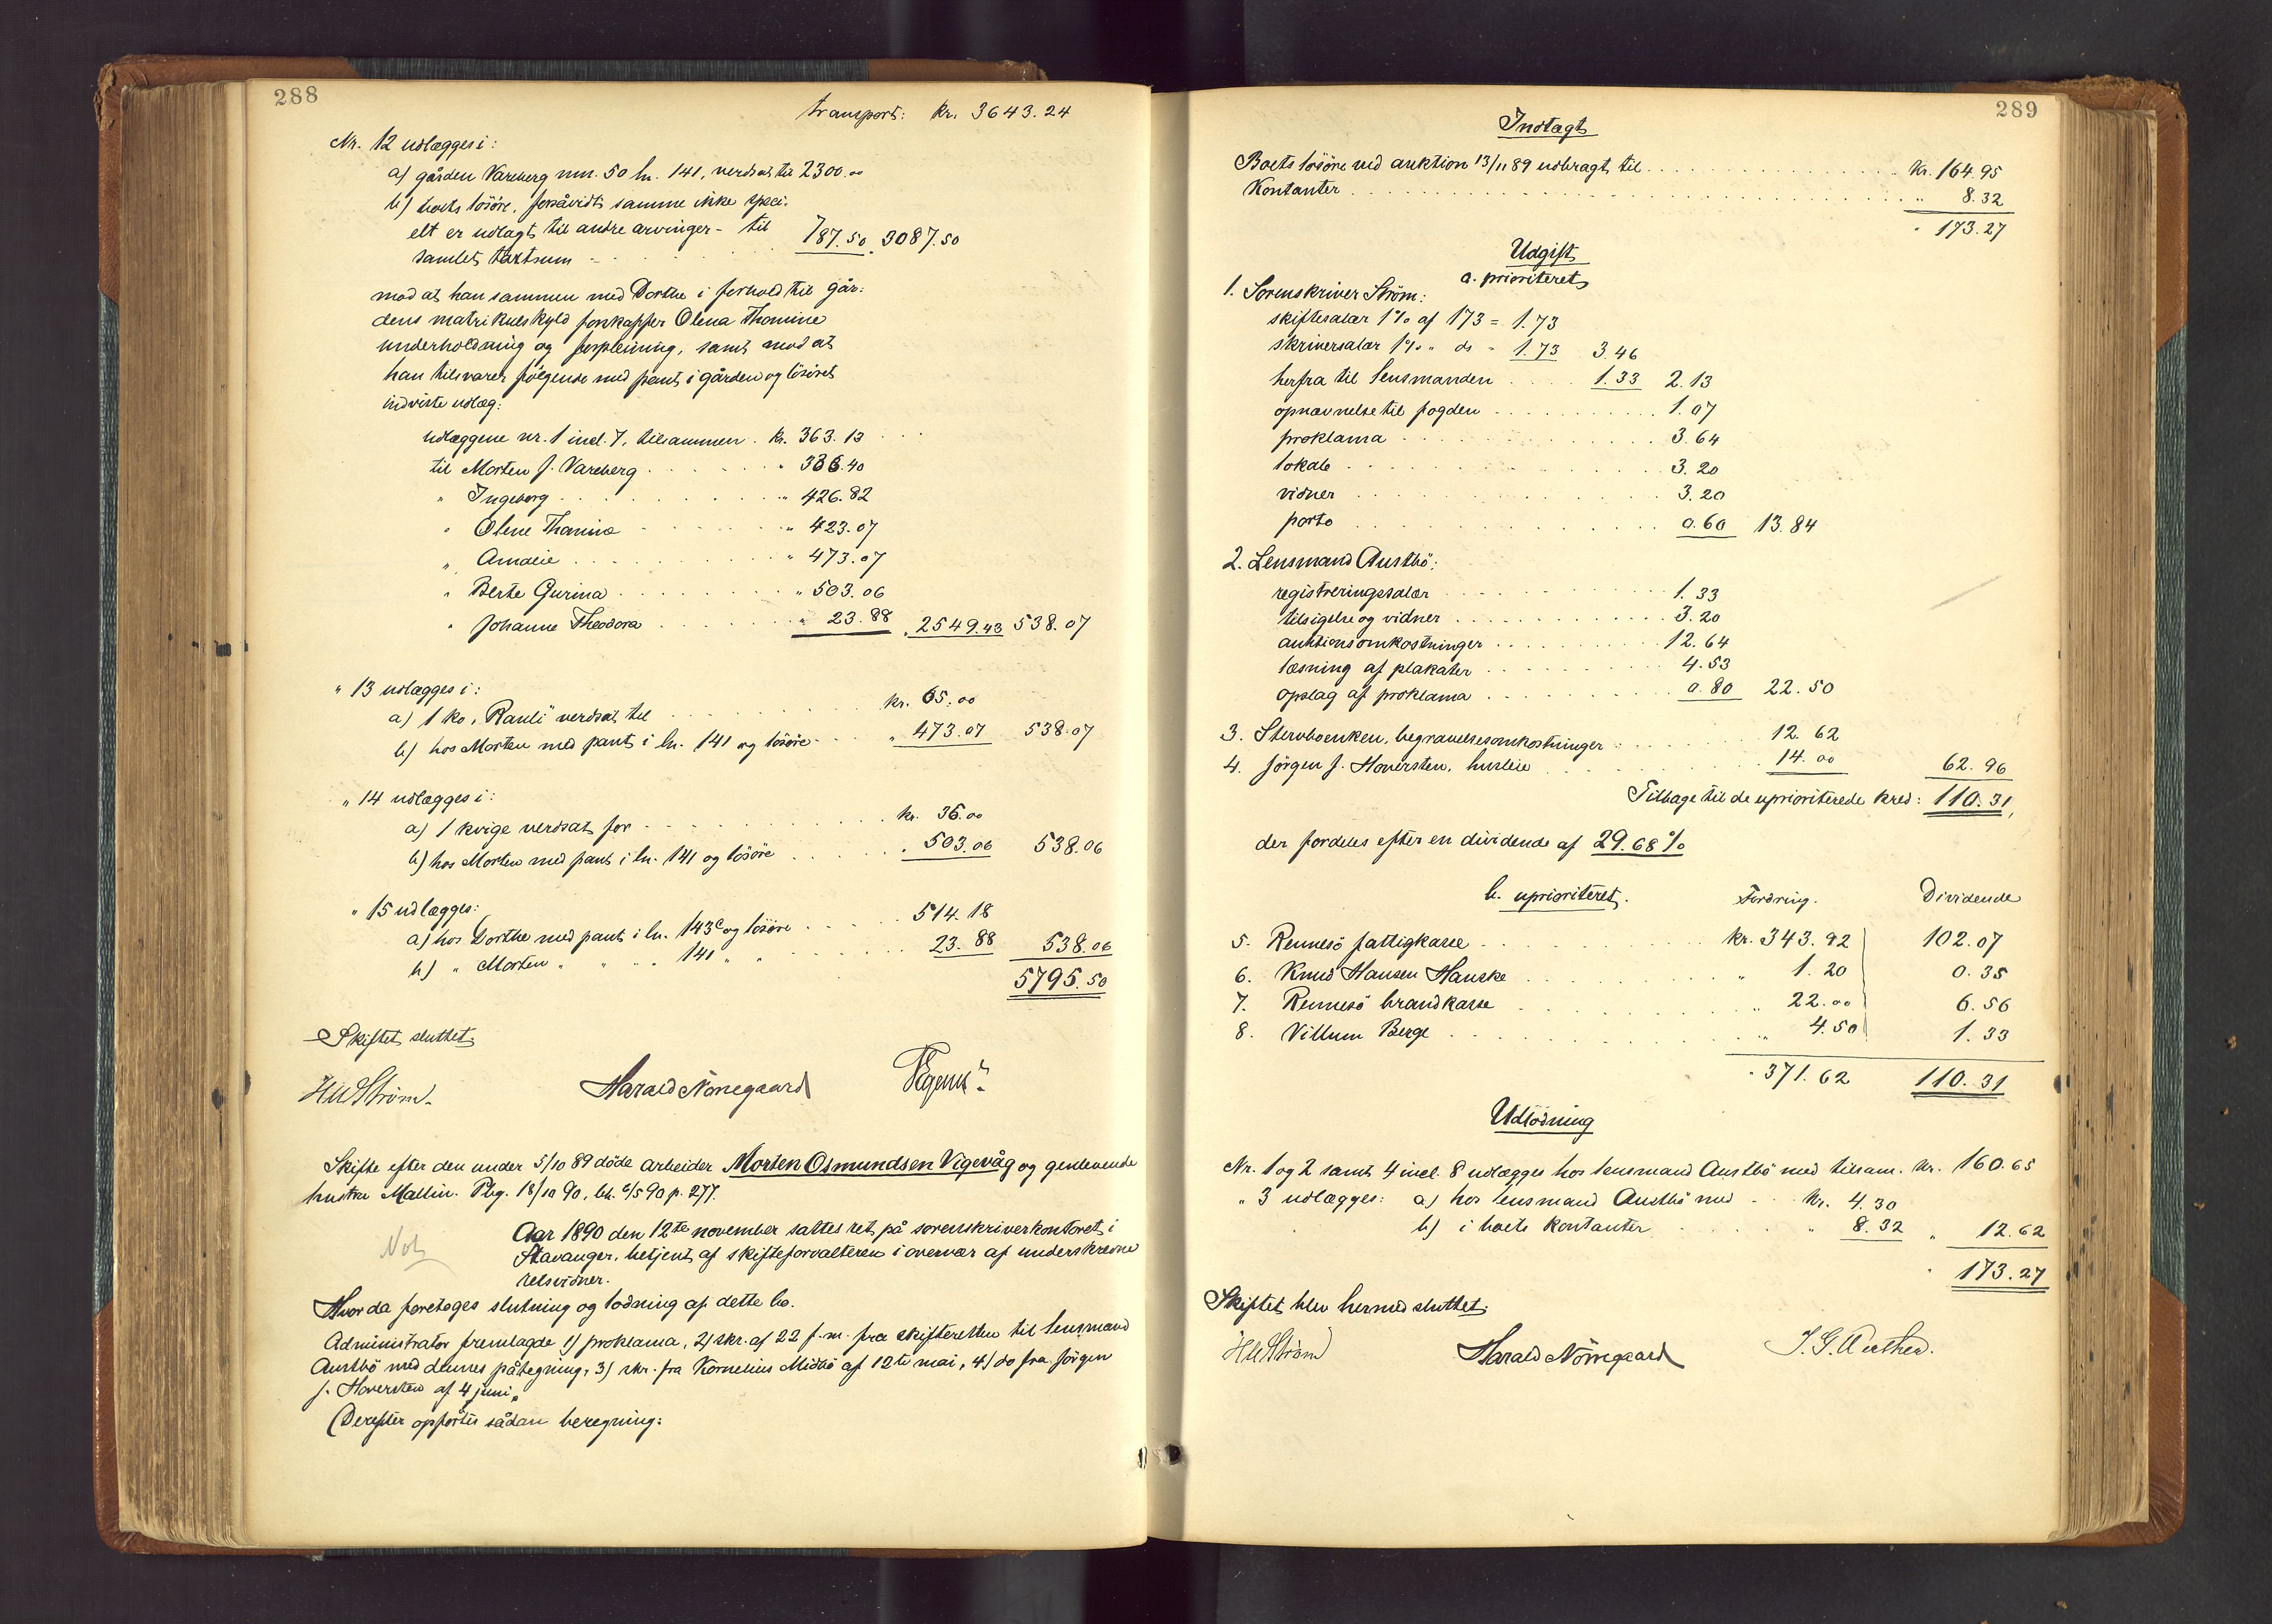 288
transport: kr. 3643.24
Nr. 12 udlægges i:
a) gården Vareberg mn. 50 ln. 141, verdsat til 2300.00
b) boets lösöre, forsåvidt samme ikke speci-
elt er udlagt til andre arvinger - til 787.50 3087.50
samlet taxtsum
mod at han sammen med Dorthe i forhold til går-
dens matrikulskyld forskaffer Olena Thomine
underholdning og forpleining, samt mod at
han tilsvarer følgende med pant i gården og lösöret
indviste udlæg:
udlæggene nr. 1 incl. 7, tilsammen. kr. 363.13
til Morten J. Vareberg " 336.40
" Ingeborg " 426.82
" Olene Thomine " 423.07
" Amalie " 473.07
" Berte Gurina " 503.06
" Johanne Theodora " 23.88 " 2549.43 538.07
" 13 udlægges i:
a) 1 ko, "Rauli" verdsat til kr. 65.00
b) hos Morten med pant i ln. 141 og lösöre " 473.07 538.07
" 14 udlægges i:
a) 1 kvige verdsat for kr. 35.00
b) hos Morten med pant i ln. 141 og lösöre " 503.06 538.06
" 15 udlægges:
a) hos Dorthe med pant i ln. 143c og lösöre 514.18
b) " Morten " " " 141 " " 23.88 538.06
5795.50
Skiftet sluttet.
HUStröm. Harald Nörregaard
Skifte efter den under 5/10 89 döde arbeider Morten Osmundsen Vigevåg og genlevende
hustru Mallin. Pbg. 18/10 90, bh. 6/5 90 p. 277.
Not
Aar 1890 den 12te november sattes ret på sorenskriverkontoret i
Stavanger, betjent af skifteforvalteren i overvær af underskrevne
retsvidner.
Hvorda foretoges slutning og lodning af dette bo.
Administrator fremlagde 1) proklama, 2) skr. af 22 f. m. fra skifteretten til lensmand
Austbö med dennes påtegning, 3) skr. fra Kornelius Midbö af 12te mai, 4) do fra Jörgen
J. Hoversten af 4 juni.
Derefter opförtes sådan beregning:
289
Indtægt
Boets lösöre ved auktion 13/11 89 udbragt til kr. 164.95
Kontanter " 8.32
" 173.27
Udgift
a. prioriteret
1. Sorenskriver Ström:
skiftesalær 1% af 173 = 1.73
skriversalær 1% " do " 1.73 3.46
herfra til lensmanden 1.33 2.13
opnævnelse til fogden 1.07
proklama 3.64
lokale 3.20
vidner 3.20
porto 0.60 13.84
2. Lensmand Austbö:
registreringssalær 1.33
tilsigelse og vidner 3.20
auktionsomkostninger 12.64
læsning af plakater 4.53
opslag af proklama 0.80 22.50
3. Stervboenken, begravelsesomkostninger 12.62
4. Jörgen J. Hoversten, husleie 14.00 62.96
Tilbage til de uprioriterede kred: 110.31,
der fordeles efter en dividende af 29.68%
b. uprioriteret. Fordring. Dividende
5. Rennesö fattigkasse kr. 343.92 102.07
6. Knud Hansen Hauske " 1.20 0.35
7. Rennesö brandkasse " 22.00 6.56
8. Villum Berge " 4.50 1.33
" 371.62 110.31
Udlödning
Nr. 1 og 2 samt 4 incl. 8 udlægges hos lensmand Austbö med tilsam. kr. 160.65
" 3 udlægges: a) hos lensmand Austbö med kr. 4.30
b) i boets kontanter " 8.32 " 12.62
" 173.27
Skiftet blev hermed sluttet.
HUStröm Harald Nörregaard